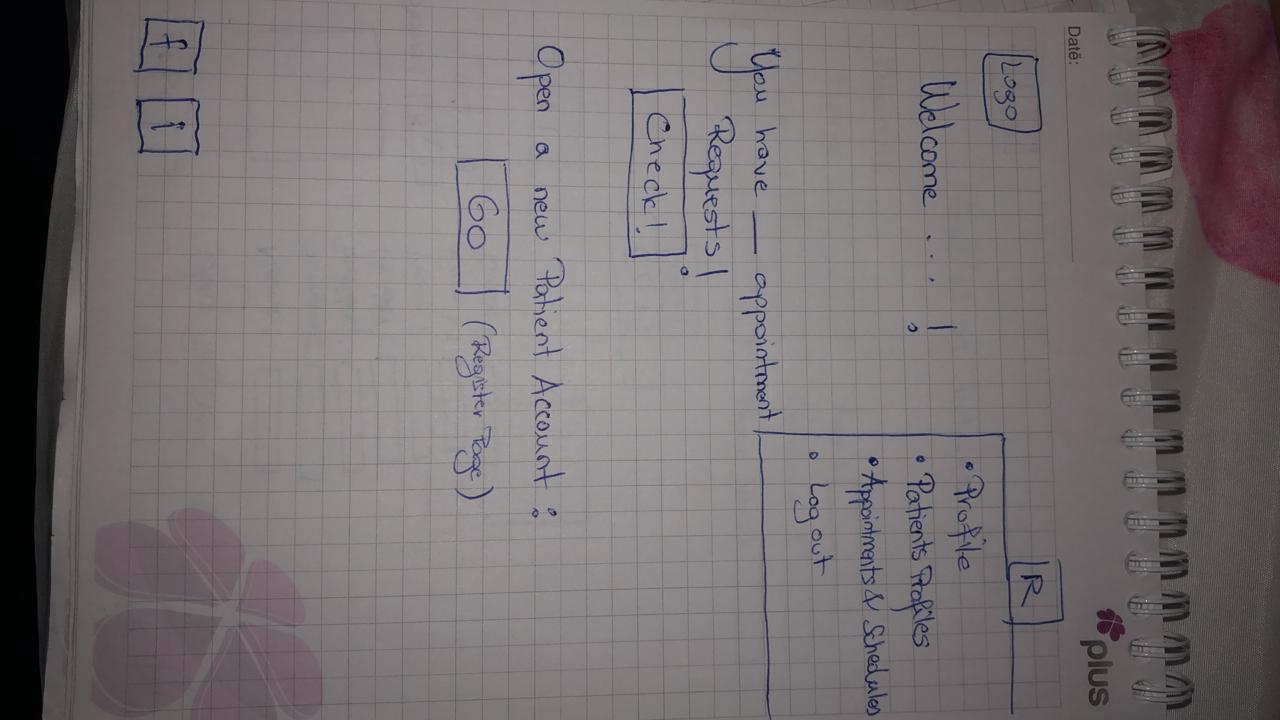 Datë:
plus
Logo
R
Welcome ... !
• Profile
• Patients Profiles
• Appointments & Schedules
• Log out
You have __ appointment
Requests!
Check!
Open a new Patient Account:
GO (Register Page)
f
i